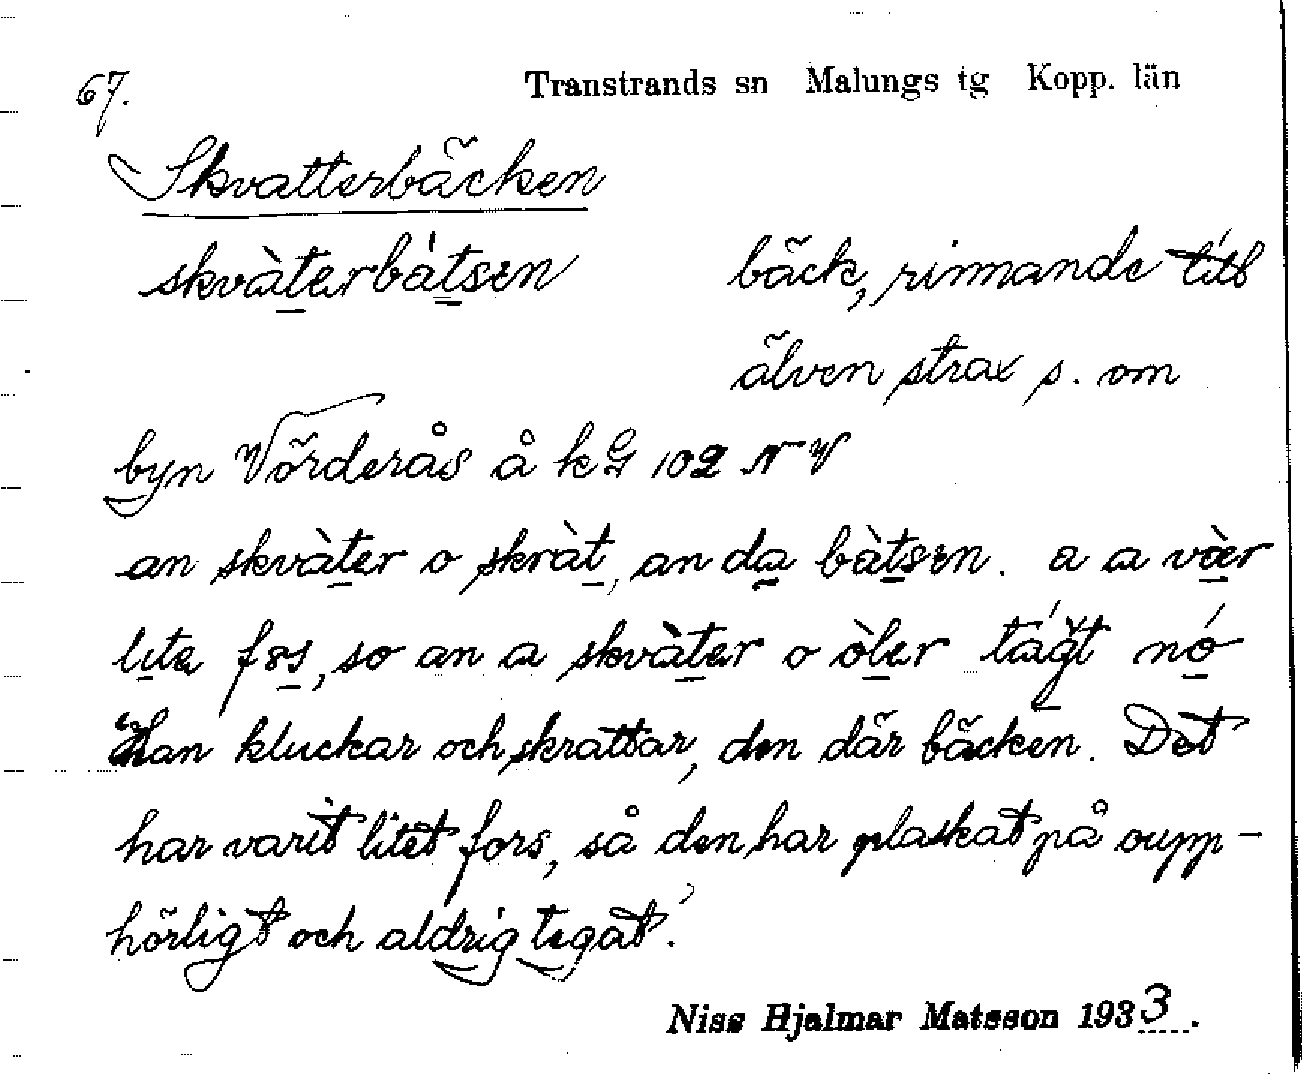 67.
Transtrands sn Malungs tg Kopp. län
Skvatterbäcken
skvàterbátsen bäck, rinnande till
älven strax s. om
byn Vörderås å k G 102 NV
an skvàter o skràt, an da bàtsen. a a vàer
lite fos, so an a skvàter o òler tágt nó
Han kluckar och skrattar, den där bäcken. Det
har varit litet fors, så den har plaskat på oupp-
hörligt och aldrig tegat.'
Niss Hjalmar Matsson 1933.